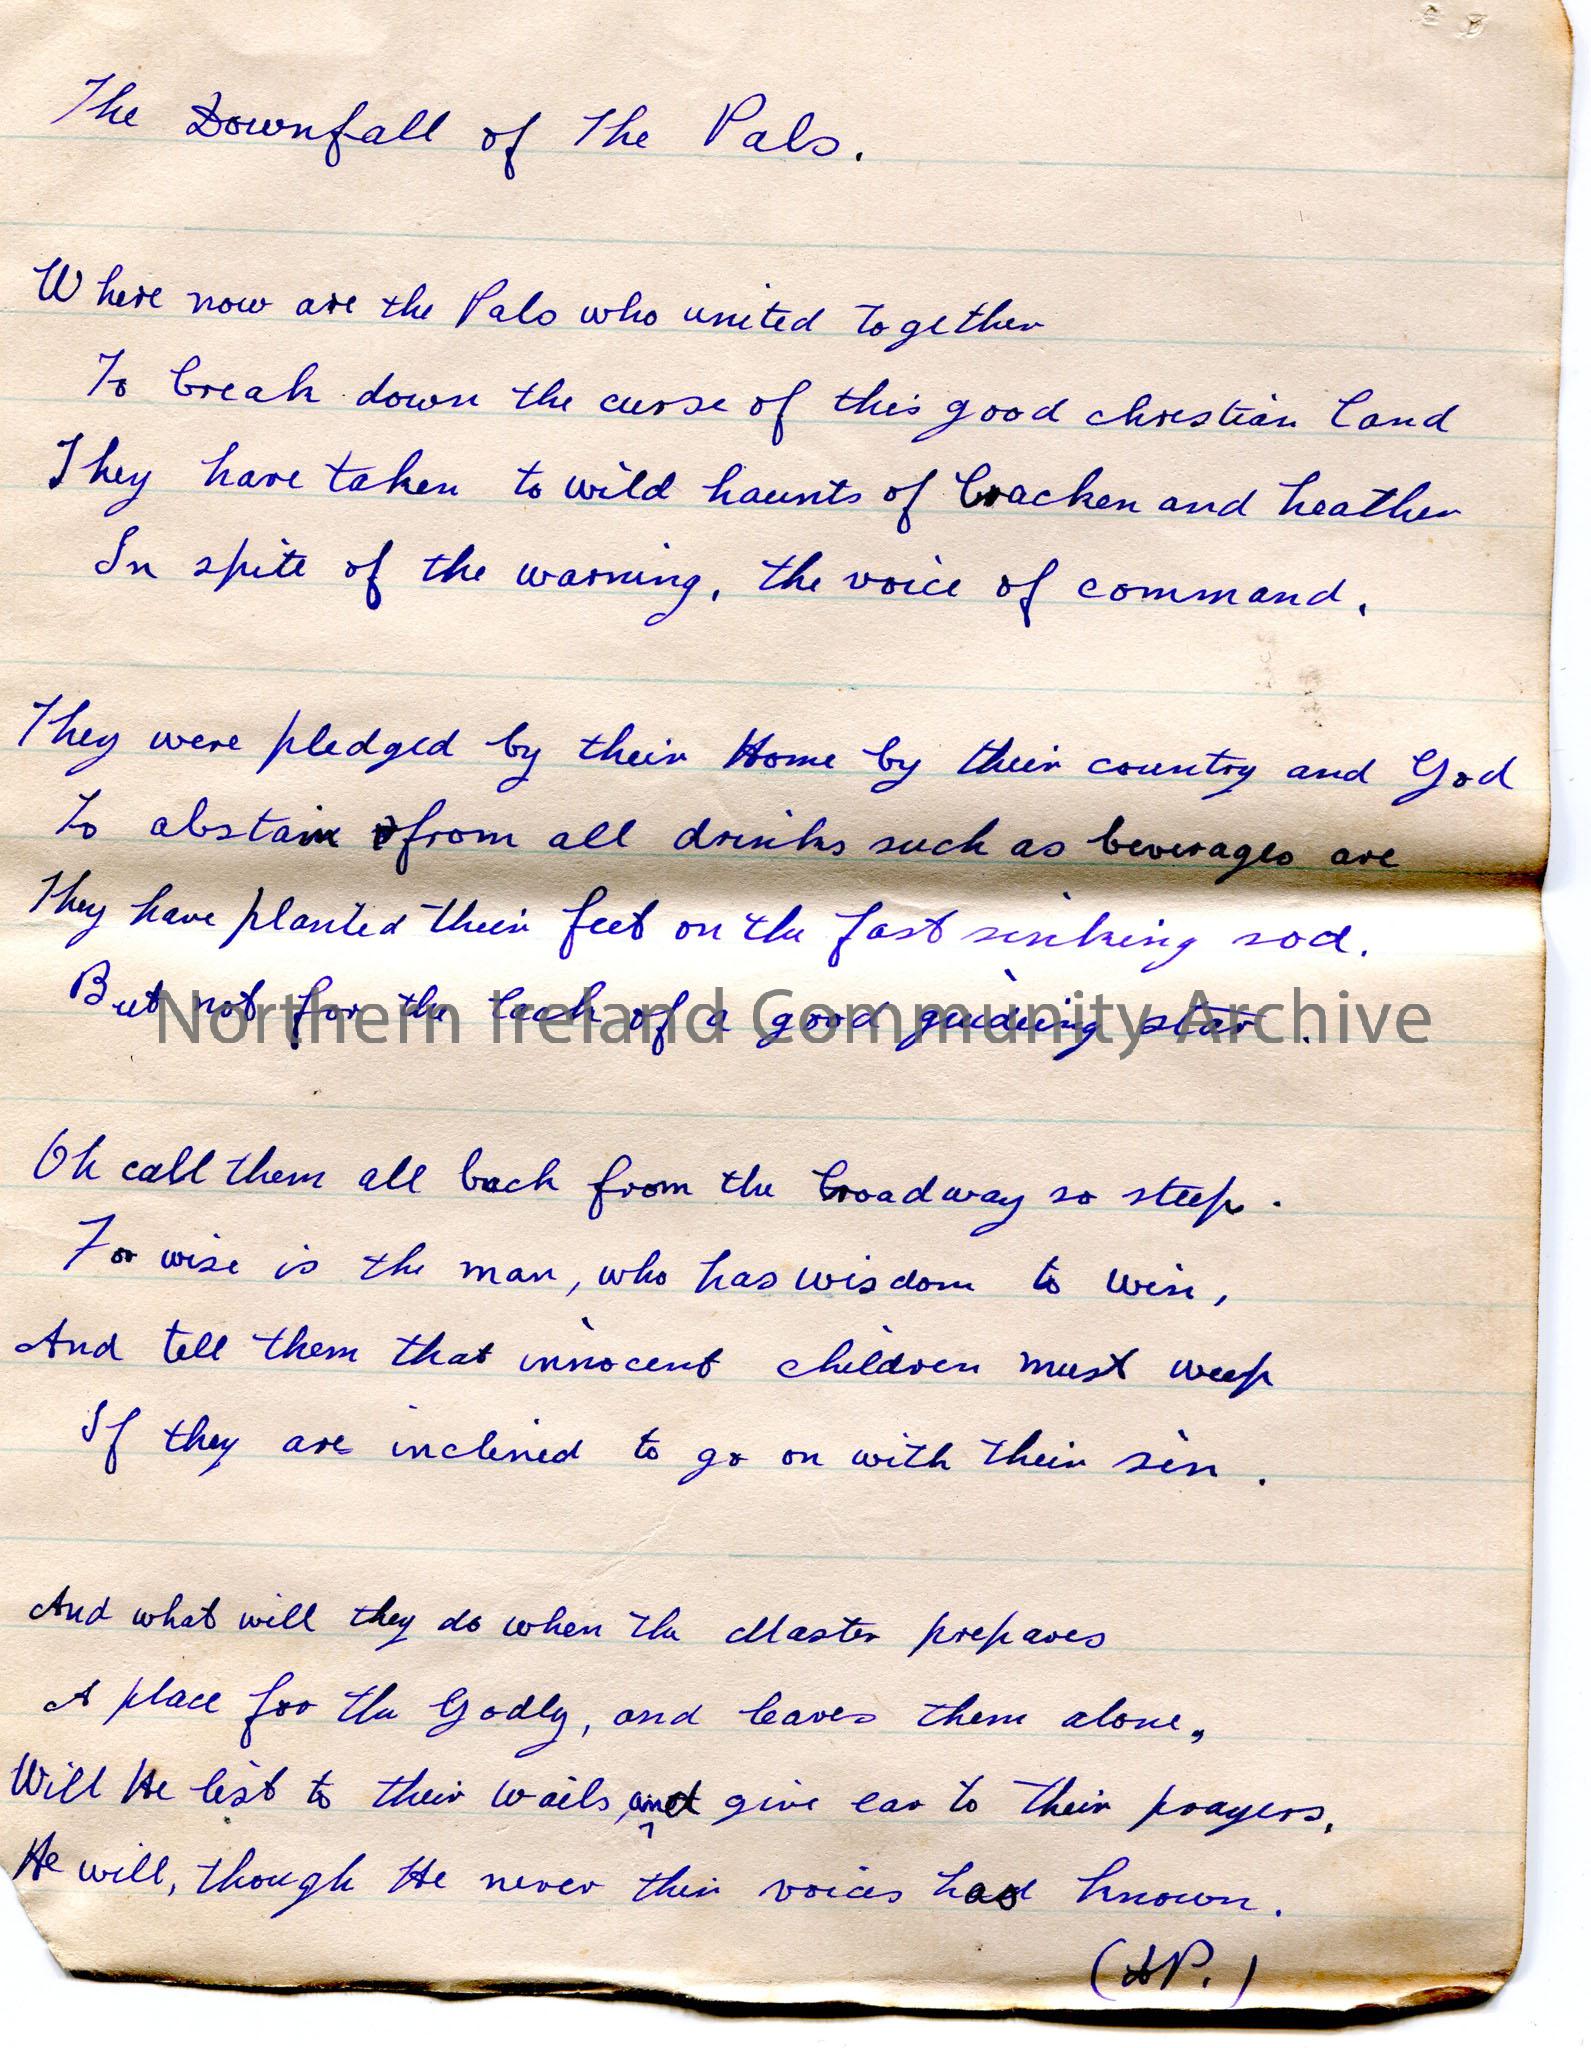 The Downfall of The Pals.
Where now are the Pals who united together
To break down the curse of this good christian land
They have taken to wild haunts of bracken and heather
In spite of the warning, the voice of command,
They were pledged by their Home by their country and God
To abstain from all drinks such as beverages are
They have planted their feet on the fast sinking sod.
But not for the lack of a good guiding star.
Northern Ireland Community Archive
Oh call them all back from the broadway so steep.
For wise is the man, who has wisdom to win,
And tell them that innocent children must weep
If they are inclined to go on with their sin.
And what will they do when the Master prepares
A place for the Godly, and leaves them alone,
Will He list to their wails, and give ear to their prayers,
He will, though He never their voices has known.